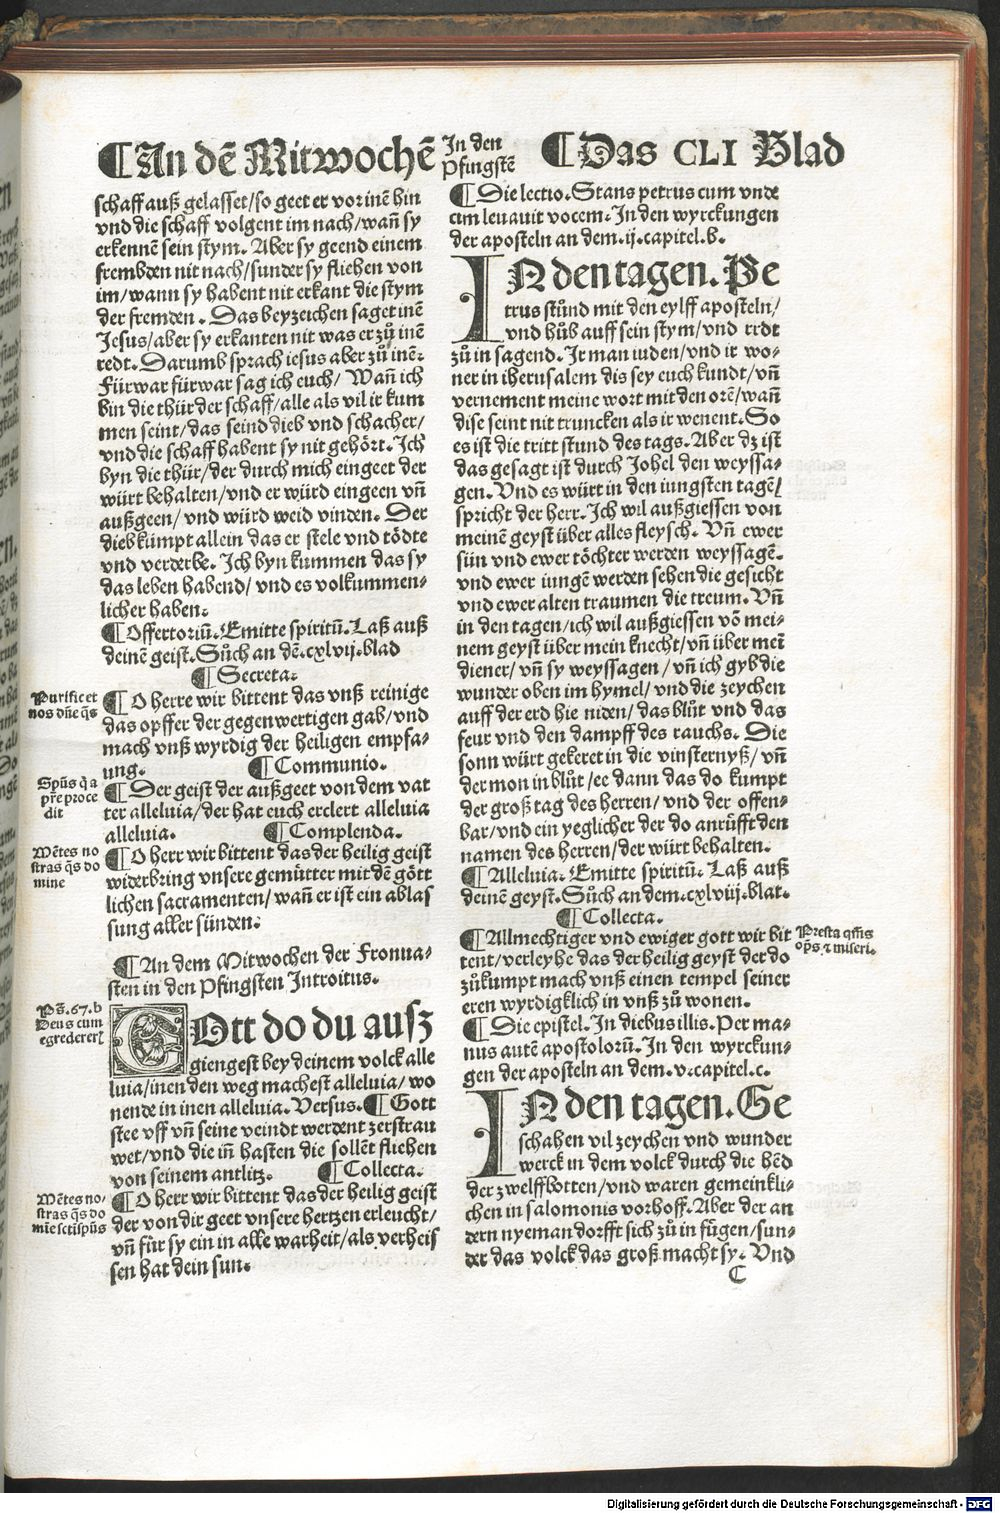 ¶An dē Mitwochē In den Pfingstē ¶Das CLI Blad
schaff auß gelasset/so geet er vor inē hin
vnd die schaff volgent im nach/wañ sy
erkennē sein stym. Aber sy geend einem
frembden nit nach/sunder sy fliehen von
im/wann sy habent nit erkant die stym
der fremden. Das beyzeichen saget inē
Jesus/aber sy erkanten nit was er zů inē
redt. Darumb sprach iesus aber zů inē.
Fürwar fürwar sag ich euch/ Wañ ich
bin die thür der schaff/alle als vil ir kum
men seint/das seind dieb vnd schacher/
vnd die schaff habent sy nit gehört. Ich
byn die thür/der durch mich eingeet der
würt behalten/vnd er würd eingeen vñ
außgeen/vnd würd weid vinden. Der
dieb kümpt allein das er stele vnd tödte
vnd verderbe. Ich byn kummen das sy
das leben habend/vnd es volkummen-
licher haben.
¶Offertoriū. Emitte spiritū. Laß auß
deinē geist. Sůch an dē. cxlvij. blad
¶Secreta.
Purificet
nos dñe q̄s
¶O herre wir bittent das vnß reinige
das opffer der gegenwertigen gab/vnd
mach vnß wyrdig der heiligen empfa-
ung. ¶Communio.
Spūs q̄ a
pr̄e proce
dit
¶Der geist der außgeet von dem vat
ter alleluia/der hat euch erclert alleluia
alleluia. ¶Complenda.
Mētes no
stras q̄s do
mine
¶O herr wir bittent das der heilig geist
widerbring vnsere gemütter mit dē gött
lichen sacramenten/wañ er ist ein ablas
sung aller sünden.
¶An dem Mitwochen der Fronua-
sten in den Pfingsten Introitus.
Ps. 67. b
Deus cum
egrederer
GOtt do du ausz
giengest bey deinem volck alle
luia/inen den weg machest alleluia/wo
nende in inen alleluia. Versus. ¶Gott
stee vff vñ seine veindt werdent zerstrau
wet/vnd die in hasten die sollēt fliehen
von seinem antlitz. ¶Collecta.
Mētes no-
stras q̄s do
mīe sctūspūs
¶O herr wir bittent das der heilig geist
der von dir geet vnsere hertzen erleucht/
vñ für sy ein in alle warheit/als verheis
sen hat dein sun.
¶Die lectio. Stans petrus cum vnde
cim leuauit vocem. In den wyrckungen
der aposteln an dem. ij. capitel. b.
IN den tagen. Pe
trus stůnd mit den eylff aposteln/
vnd hůb auff sein stym/vnd redt
zů in sagend. Ir man iuden/vnd ir wo-
ner in iherusalem dis sey euch kundt/vñ
vernement meine wort mit den orē/wañ
dise seint nit truncken als ir wenent. So
es ist die tritt stund des tags. Aber dz ist
das gesagt ist durch Johel den weyssa-
gen. Vnd es würt in den iungsten tagē/
spricht der herr. Ich wil außgiessen von
meinē geyst über alles fleysch. Vñ ewer
sün vnd ewer töchter werden weyssagē.
vnd ewer iungē werden sehen die gesicht
vnd ewer alten traumen die treum. Vñ
in den tagen/ich wil außgiessen vō mei-
nem geyst über mein knecht/vñ über meī
diener/vñ sy weyssagen/vñ ich gyb die
wunder oben im hymel/vnd die zeychen
auff der erd hie niden/das blůt vnd das
feur vnd den dampff des rauchs. Die
sonn würt gekeret in die vinsternyß/vñ
der mon in blůt/ee dann das do kumpt
der groß tag des herren/vnd der offen-
bar/vnd ein yeglicher der do anrüfft den
namen des herren/der würt behalten.
¶Alleluia. Emitte spiritū. Laß auß
deinē geyst. Sůch an dem. cxlviij. blat.
¶Collecta.
¶Allmechtiger vnd ewiger gott wir bit
tent/verleyhe das der heilig geyst der do
zůkumpt mach vnß einen tempel seiner
eren wyrdigklich in vnß zů wonen.
Presta q̄sis
op̄s. ⁊ miseri.
¶Die epistel. In diebus illis. Per ma-
nus autē apostolorū. In den wyrckun-
gen der aposteln an dem. v. capitel. c.
IN den tagen. Ge
schahen vil zeychen vnd wunder
werck in dem volck durch die hēd
der zwelffbotten/vnd waren gemeinkli-
chen in salomonis vorhoff. Aber der an
dern nyeman dorfft sich zů in fügen/sun-
der das volck das groß macht sy. Vnd
C
Digitalisierung gefördert durch die Deutsche Forschungsgemeinschaft - DFG